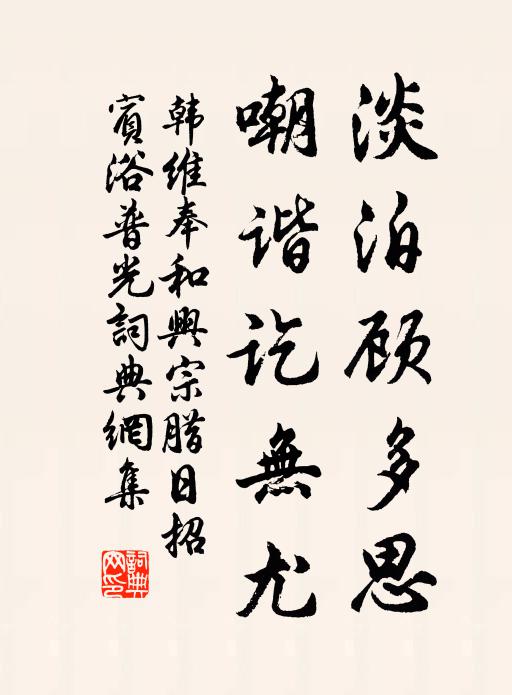 淡泊顾多思
嘲谐讫無尤
韩维奉和興宗腊日招
賓浴普光詞典網集
詞典網印